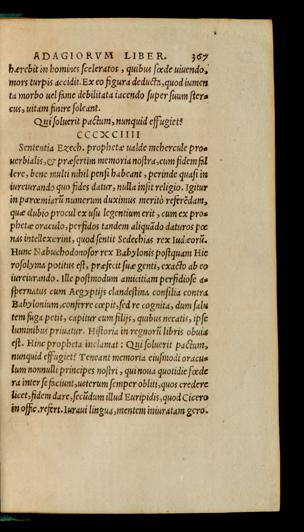 ADAGIORVM LIBER. 367
hærebit in homines sceleratos, quibus sœde uiuendo,
mors turpis accidit. Ex eo figura deducta, quod iumen
ta morbo uel fame debilitata iacendo super suum ster
cus, uitam finire soleant.
Qui soluerit pactum, nunquid effugiet?
CCCXCIIII
Sententia Ezech. prophetæ ualde mehercule pro
uerbialis, & præsertim memoria nostra, cum fidem fal
lere, bene multi nihil pensi habeant, perinde quasi in
iureiurando quo fides datur, nulla insit religio. Igitur
in parœmiarũ numerum duximus meritò referẽdam,
quæ dubio procul ex usu legentium erit, cum ex pro⸗
phetæ oraculo, perfidos tandem aliquãdo daturos pœ
nas intellexerint, quod sentit Sedechias rex Iudæorũ.
Hunc Nabuchodonosor rex Babylonis postquam Hie
rosolyma potitus est, præfecit suæ genti, exacto ab eo
iureiurando. Ille postmodum amicitiam perfidiose a⸗
spernatus cum Aegyptijs clandestina consilia contra
Babylonium, conferre cœpit, sed re cognita, dum salu
tem fuga petit, capitur cum filijs, quibus necatis, ipse
luminibus priuatur. Historia in regnorũ libris obuia
est. Hinc propheta inclamat: Qui soluerit pactum,
nunquid effugiet? Teneant memoria eiusmodi oracu⸗
lum nonnulli principes nostri, qui noua quotidie fœde
ra inter se faciunt, ueterum semper obliti, quos credere
licet, fidem dare, secũdum illud Euripidis, quod Cicero
in offic. refert. Iuraui lingua, mentem iniuratam gero.